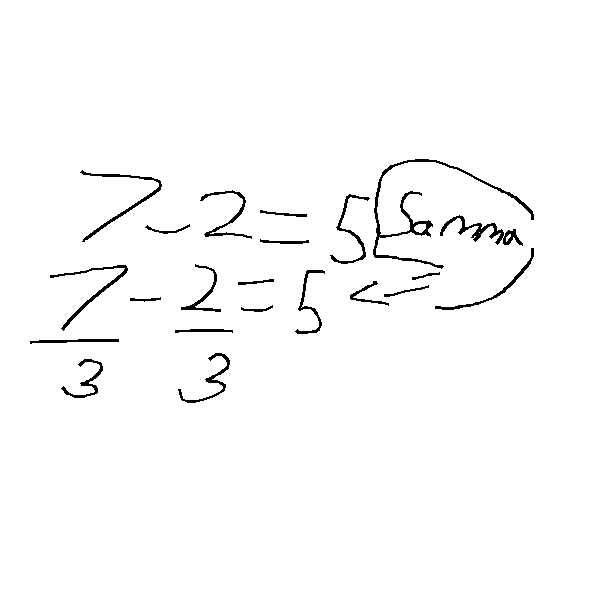 7 - 2 = 5 Samma
7/3 - 2/3 = 5 <=